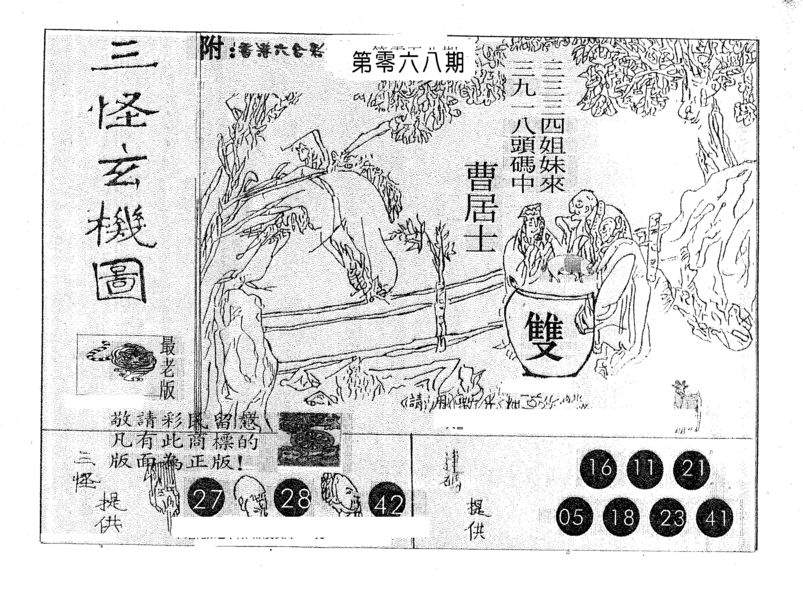 三怪玄機圖
附:香港六合彩
第零六八期
二三三四姐妹來
三九一八頭碼中
曹居士
雙
最老版
敬請彩民留戀
凡有此商標的
版面為正版!
三怪
提供
27 28 42
提供
16 11 21
05 18 23 41